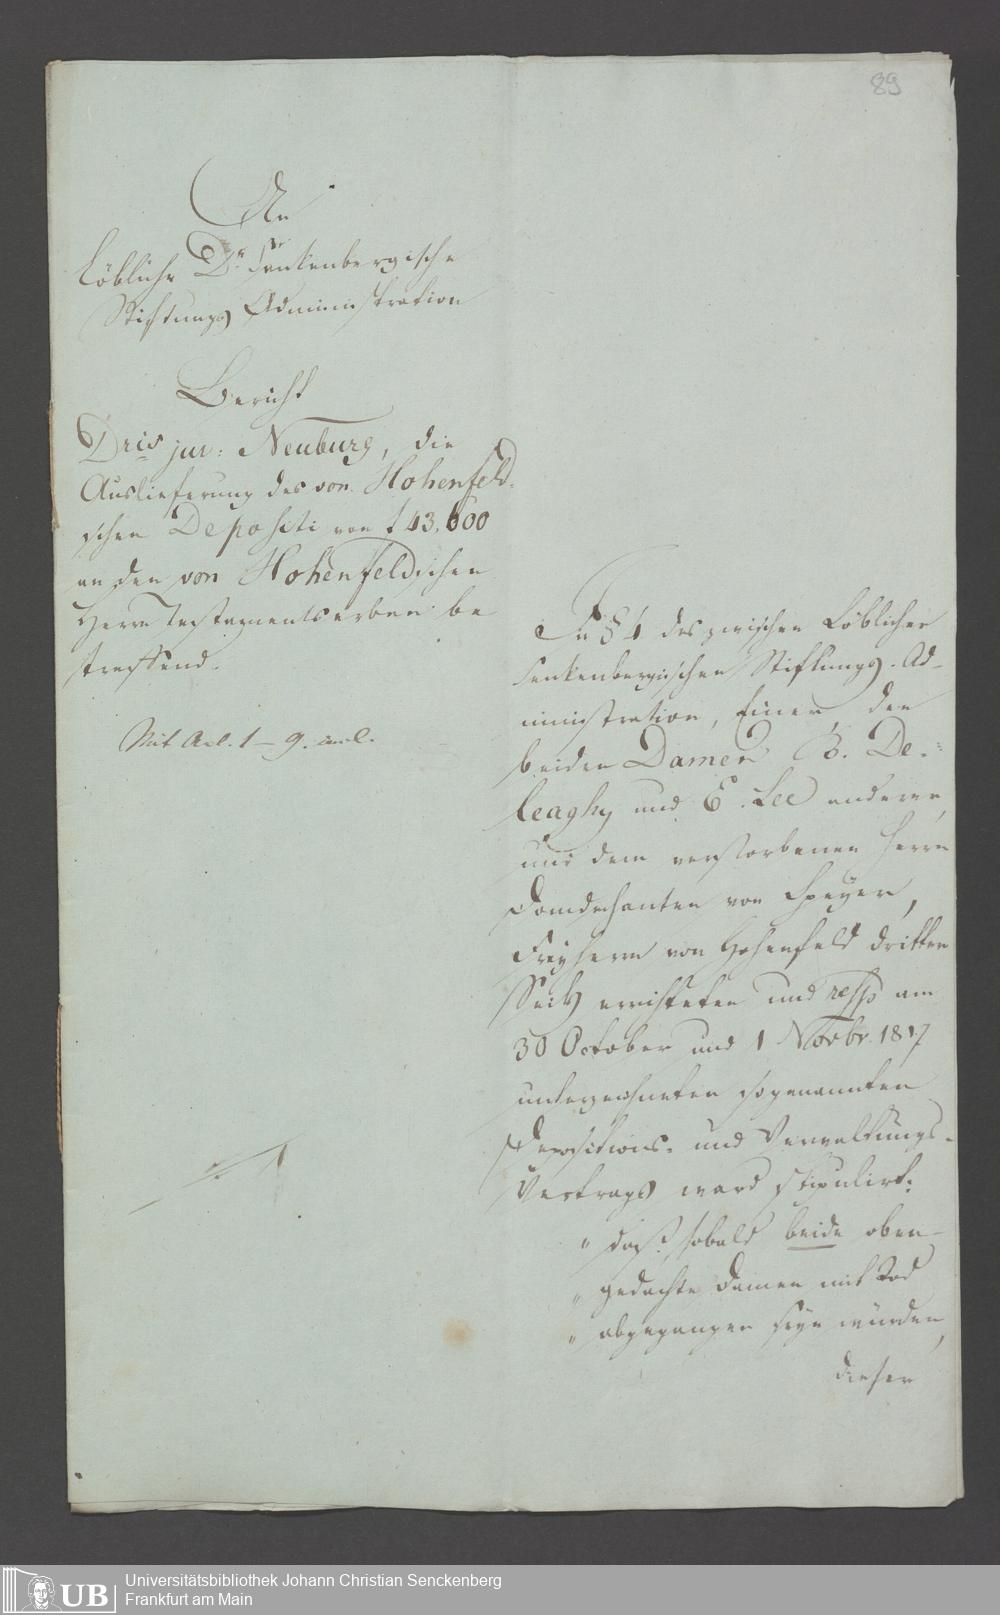 89
An
Löbliche Dr. Senkenbergische
Stiftungs Administration
Bericht
Dris jur: Neuburg, die
Auslieferung des von Hohenfeld-
schen Depositi von f 43,600
an den von Hohenfeldschen
Herrn Testamentserben be
treffend.
Mit Anl. 1-9. incl.
In § 4 des zwischen Löblicher
Senkenbergischen Stiftungs-Ad-
ministration, Einer, den
beiden Damen B. De-
leaghy und E. Lee anderer,
und dem verstorbenen Herrn
Domdechanten von Speyer,
Freyherrn von Hohenfeld dritter
Seits errichteten und resp am
30 October und 1 Novbr. 1817
unterzeichneten sogenannten
Depositions- und Verwaltungs-
Vertrags ward stipulirt:
" daß, sobald beide oben-
" gedachte Damen mit Tod
" abgegangen seyn würden,
dieser
UB
Universitätsbibliothek Johann Christian Senckenberg
Frankfurt am Main